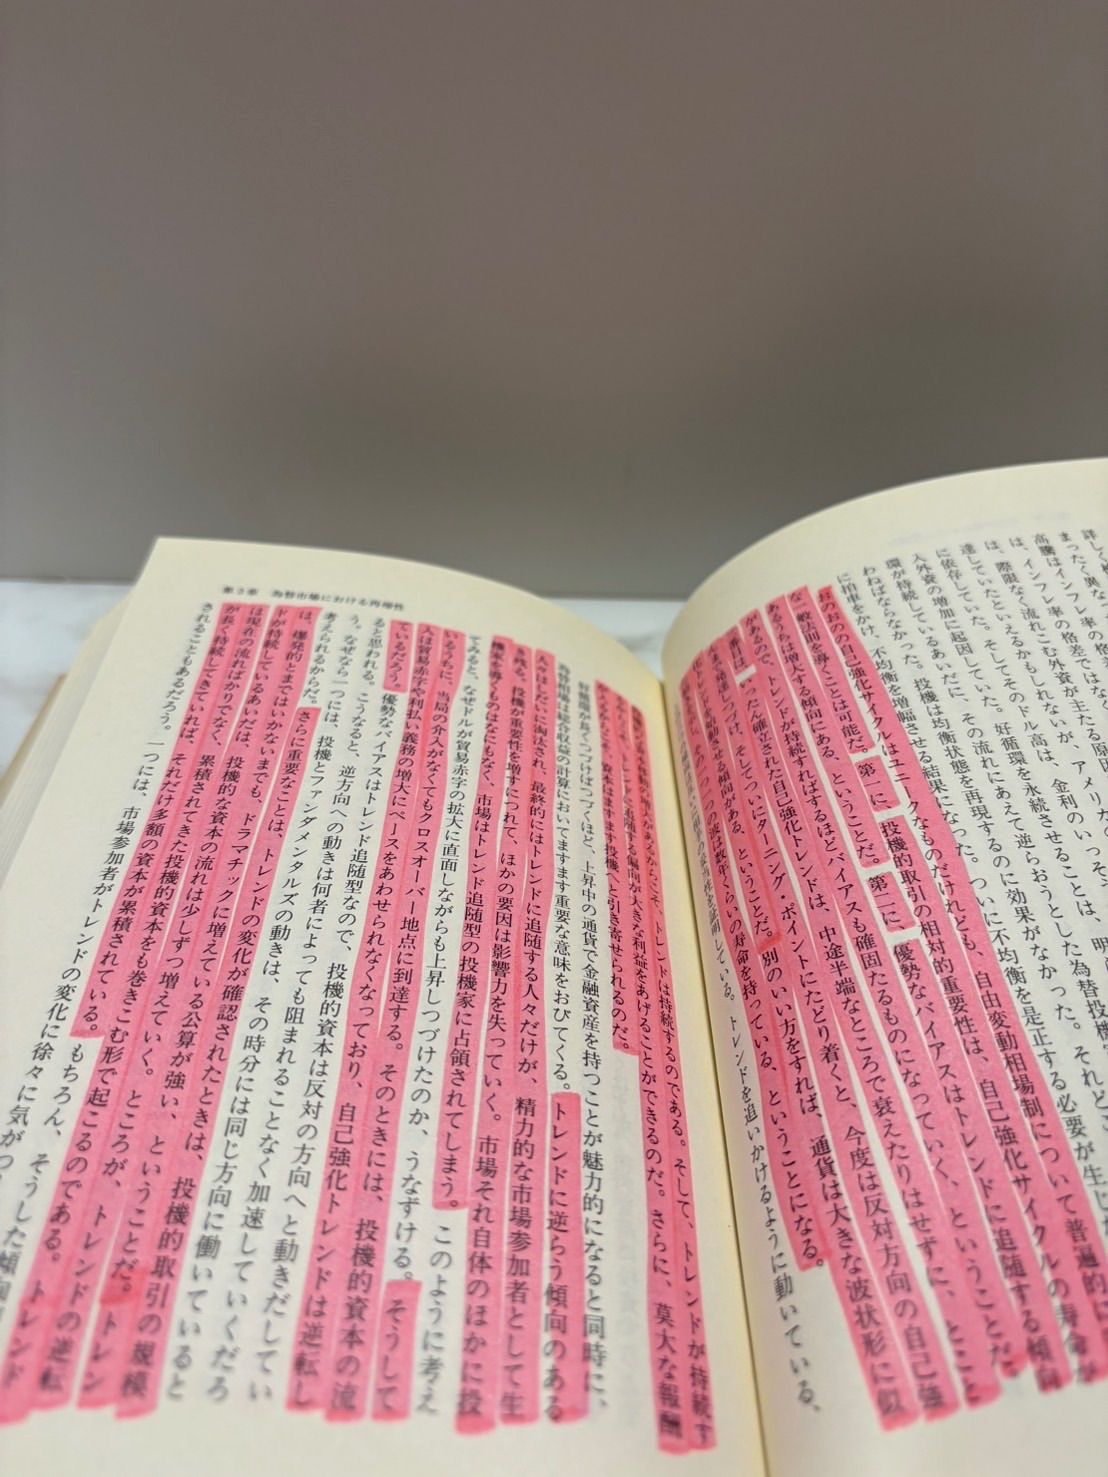 詳しく
まったく異なる
高騰はインフレ率の格差ではな
は、インフレ率の格差が主たる原
は、際限なく流れこむ外資が主たる原
達していたといえるかもしれないが、アメリカの
に依存していた。そしてそのドル高は、金利のいっそ
人外資の増加に起因していた。好循環を永続させることは、明
環が持続しているあいだに、その流れにあえて逆らおうとした為替投機
わねばならなかった。投機は均衡状態を再現するのに効果がなかった。それど
に拍車をかけ、不均衡を増幅させる結果になった。ついに不均衡を是正する必要が生じ
おのおのの自己強化サイクルはユニークなものだけれども、自由変動相場制について普遍的に
な一般法則を導くことは可能だ。第一に、投機的取引の相対的重要性は、自己強化サイクルの寿命が
あるうちは増大する傾向にある、ということだ。第二に、優勢なバイアスはトレンドに追随する傾向
があるので、トレンドが持続すればするほどバイアスも確固たるものになっていく、ということだ。
三番目は、いったん確立された自己強化トレンドは、中途半端なところで衰えたりはせずに、とこと
ん発達しつづけ、そしてついにターニング・ポイントにたどり着くと、今度は反対方向の自己強
化を始動させる傾向がある、ということだ。別のいい方をすれば、通貨は大きな波状形に似
一つの波は数年くらいの寿命を持っている、ということになる。
を証明している。トレンドを追いかけるように動いている、
第3章 為替市場における再帰性
トレンドは持続するのである。そして、トレンドが持続す
追随する偏向が大きな利益をあげることができるのだ。さらに、莫大な報酬
資本はますます投機へと引き寄せられるのだ。
好循環が長くつづけばつづくほど、上昇中の通貨で金融資産を持つことが魅力的になると同時に、
為替相場は総合収益の計算においてますます重要な意味をおびてくる。トレンドに逆らう傾向のある
人々はしだいに淘汰され、最終的にはトレンドに追随する人々だけが、精力的な市場参加者として生
き残る。投機が重要性を増すにつれて、ほかの要因は影響力を失っていく。市場それ自体のほかに投
機家を導くものはなにもなく、市場はトレンド追随型の投機家に占領されてしまう。このように考え
てみると、なぜドルが貿易赤字の拡大に直面しながらも上昇しつづけたのか、うなずける。そうして
いるうちに、当局の介入がなくてもクロスオーバー地点に到達する。そのときには、投機的資本の流
入は貿易赤字や利払い義務の増大にペースをあわせられなくなっており、自己強化トレンドは逆転し
ているだろう。優勢なバイアスはトレンド追随型なので、投機的資本は反対の方向へと動きだしてい
ると思われる。こうなると、逆方向への動きは何者によっても阻まれることなく加速していくだろ
う。なぜなら一つには、投機とファンダメンタルズの動きは、その時分には同じ方向に働いていると
考えられるからだ。さらに重要なことは、トレンドの変化が確認されたときは、投機的取引の規模
は、爆発的とまではいかないまでも、ドラマチックに増えている公算が強い、ということだ。トレン
ドが持続しているあいだは、投機的な資本の流れは少しずつ増えていく。ところが、トレンドの逆転
は現在の流ればかりでなく、累積されてきた投機的資本をも巻きこむ形で起こるのである。トレンド
が長く持続してきていれば、それだけ多額の資本が累積されている。もちろん、そうした傾向
されることもあるだろう。一つには、市場参加者がトレンドの変化に徐々に気がつ